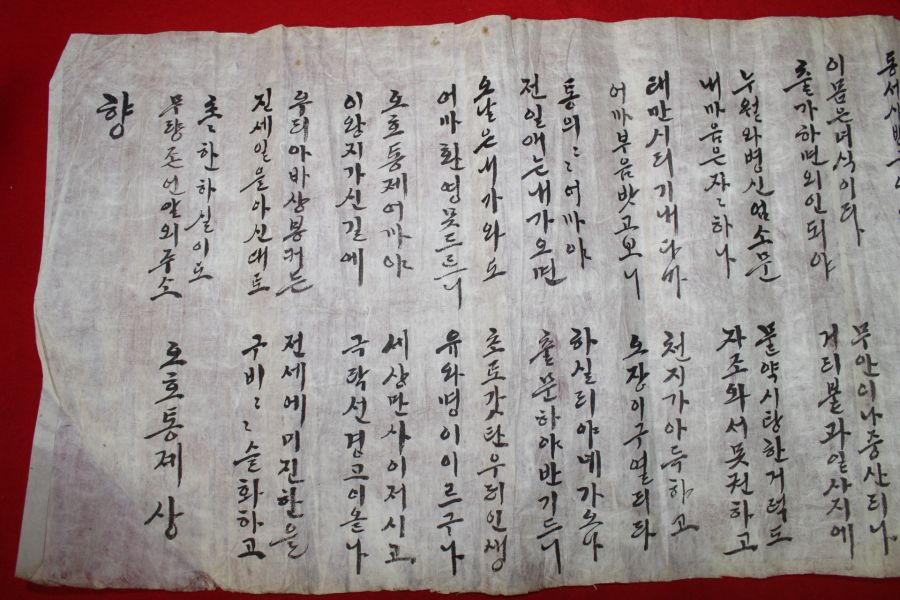 이몸은녀식이라
출가하면외인되야
무안이나중산리나
거리불과일사지에
누원와병신엄소문
내마음은자〻하나
불약시탕한거럭도
자조와서못권하고
태만시리기내다가
어마부음밧고보니
천지가아득하고
오장이구열리라
통의〻어마야
전일애는내가오면
하실리야네가오나
출문하야반기드니
오날은내가와도
어마환영못드르니
초로갓탄우리인생
유와명이이르구나
오호통제어마야
이왕지가신길에
세상만사이저시고
극락선경그이올나
우리아바상봉커든
진세일을아신대로
전세에미진한을
구비〻슬화하고
초〻한하실이도
무량조언알외주소
오호통제 상
향